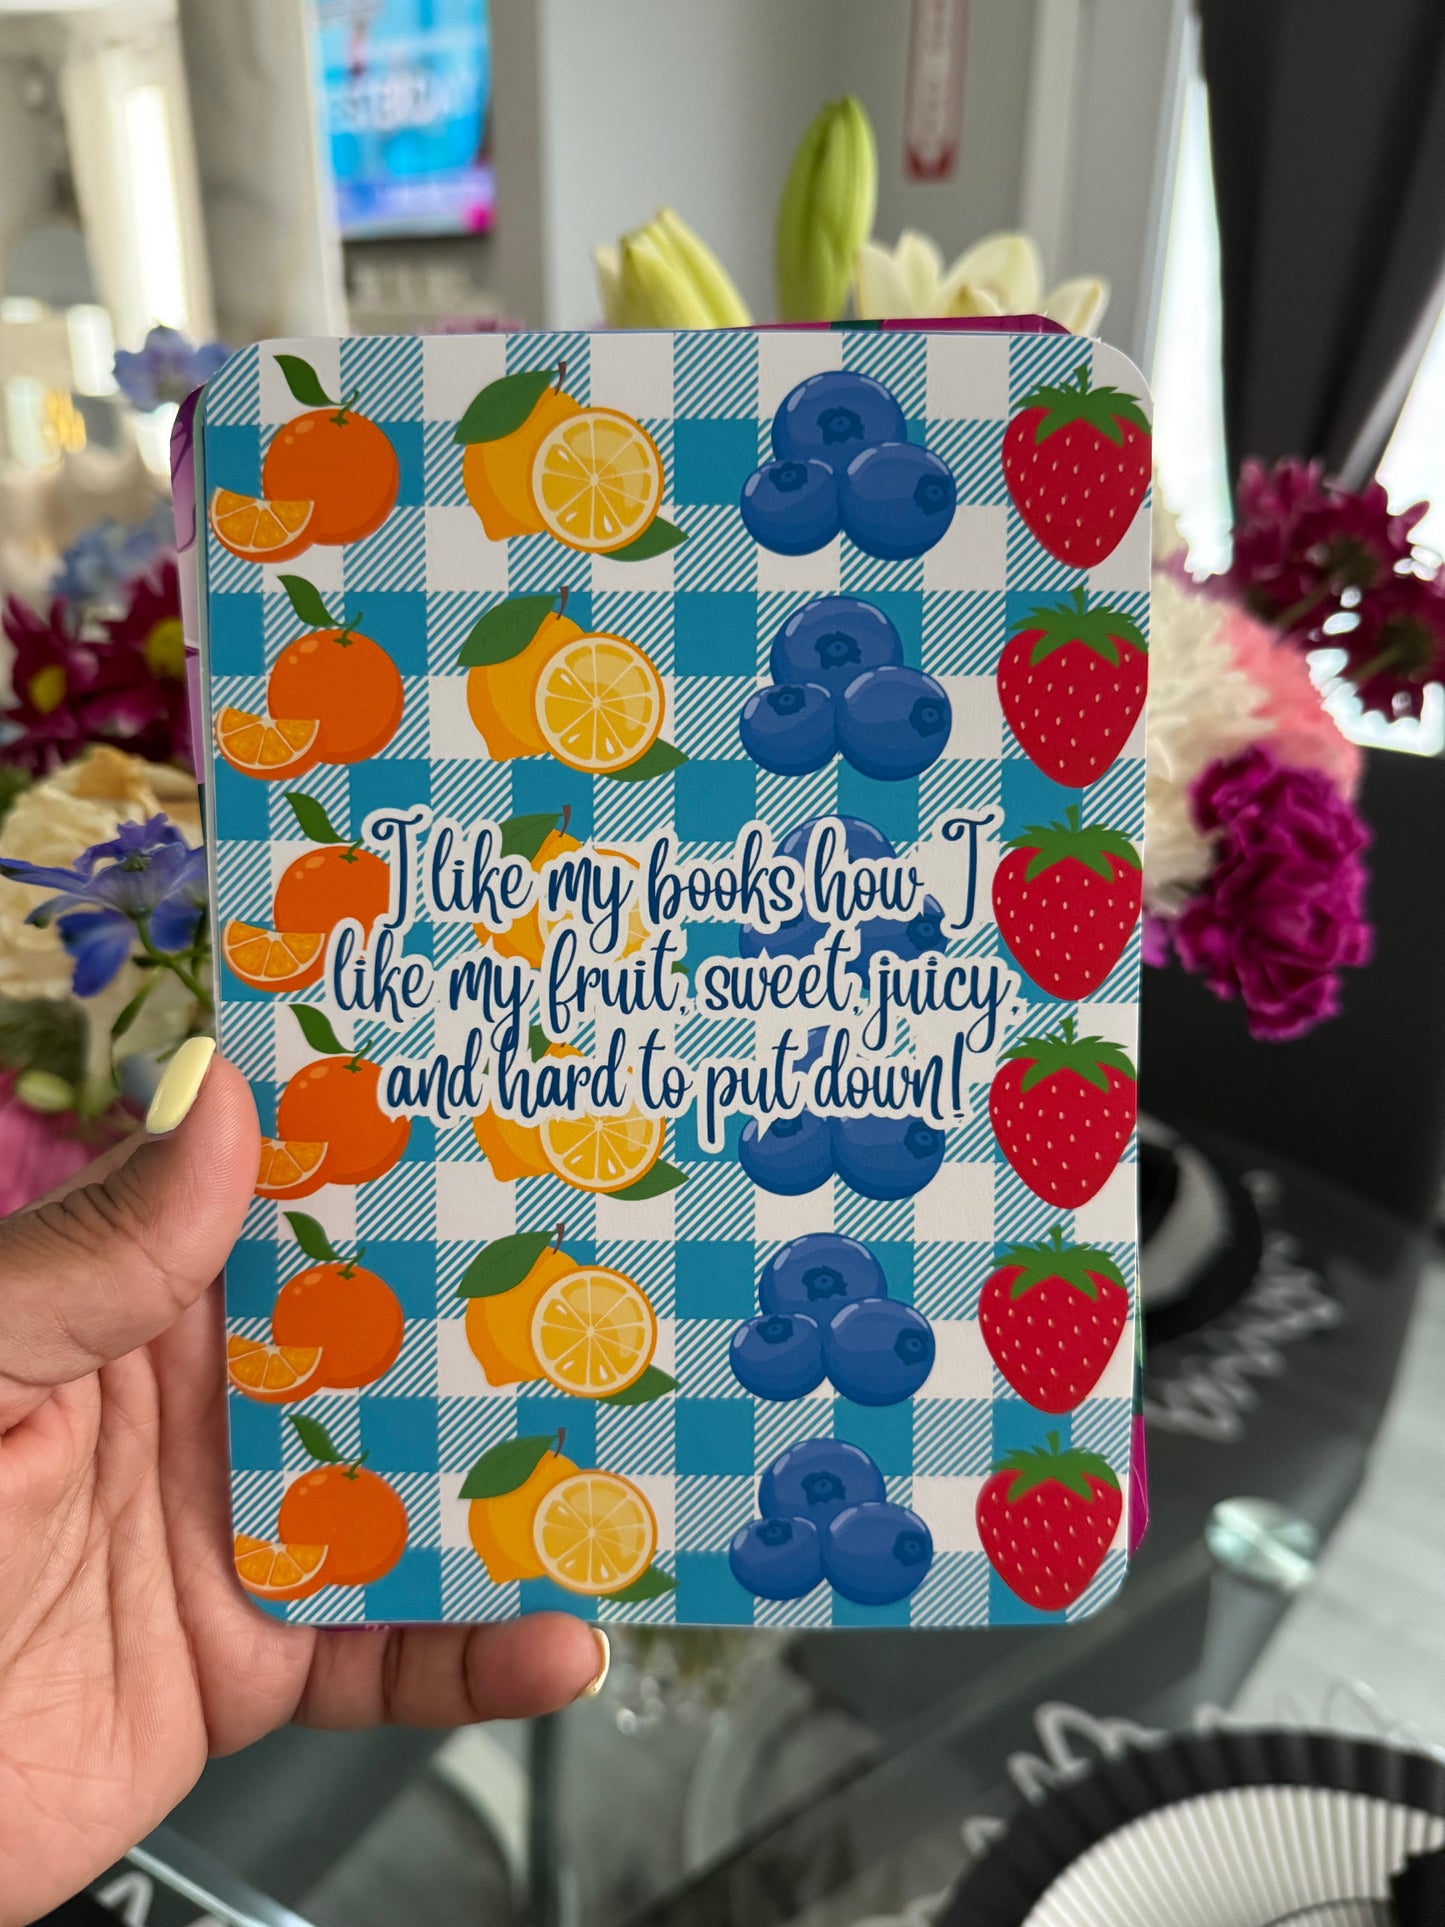 I like my books how I
like my fruit, sweet, juicy,
and hard to put down!